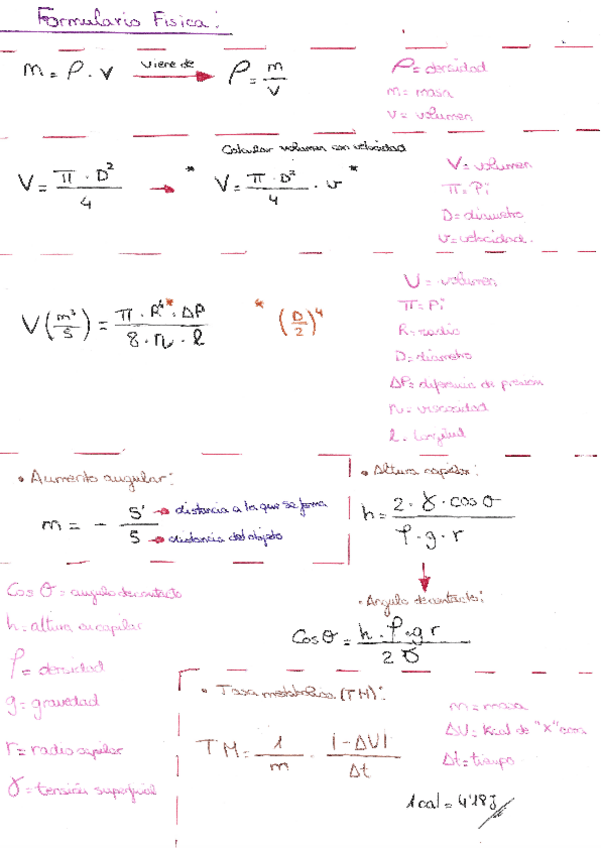 Formulario Fisica:
m = ρ · v viene de → ρ = m/v
ρ = densidad
m = masa
v = volumen
Calcular volumen con velocidad
V = π · D²/4 → * V = π · D²/4 · v *
V = volumen
π = Pi
D = diametro
v = velocidad.
V (m³/s) = π · R⁴* · ΔP / 8 · η · l * (D/2)⁴
V = volumen
π = Pi
R = radio
D = diametro
ΔP = diferencia de presion
η = viscosidad
l = longitud
• Aumento angular:
m = - S'/S
S' → distancia a la que se forma
S → distancia del objeto
• Altura capilar:
h = 2 · γ · cos θ / ρ · g · r
• Angulo de contacto:
Cos θ = h · ρ · g r / 2 γ
Cos θ = angulo de contacto
h = altura en capilar
ρ = densidad
g = gravedad
r = radio capilar
γ = tensión superficial
• Tasa metabolica (TM):
TM = 1/m · |-ΔU|/Δt
m = masa
ΔU = Kcal de "X" cosa
Δt = tiempo
1 cal = 4'18 J